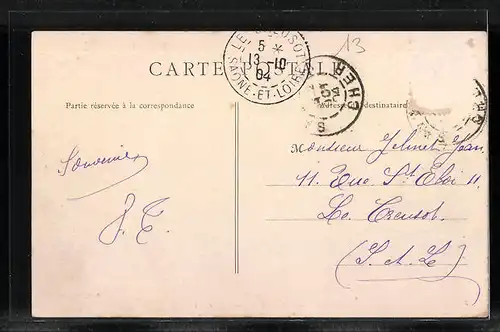 13
LE CREUSOT
5 *
13-10
04
SAÔNE-ET-LOIRE
CARTE POSTALE
CHER
Partie réservée à la correspondance
Adresse du destinataire
Souvenir
Monsieur Jolinet Jean
11. Rue St Eloi 11
Le Creusot.
(S. et L)